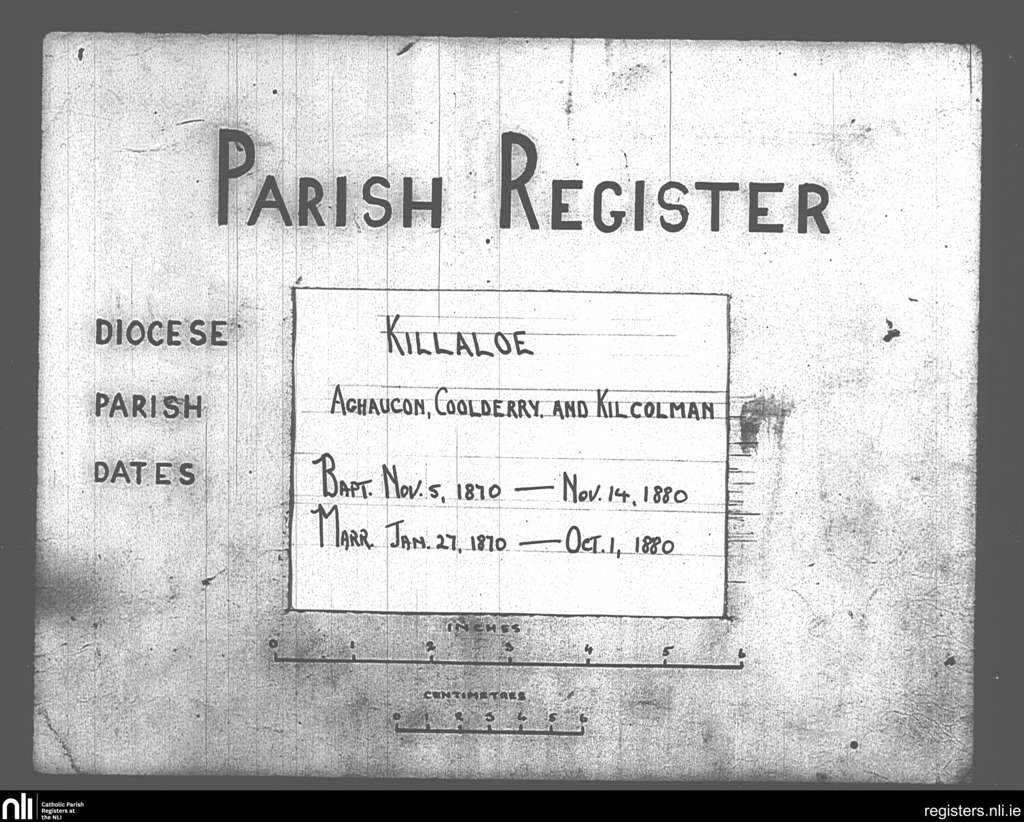 PARISH REGISTER
DIOCESE KILLALOE
PARISH AGHAUCON, COOLDERRY, AND KILCOLMAN
DATES
BAPT. NOV. 5, 1870 — NOV. 14, 1880
MARR. JAN. 27, 1870 — OCT. 1, 1880
INCHES
0 1 2 3 4 5 6
CENTIMETRES
0 1 2 3 4 5 6
nli Catholic Parish
Registers at
the NLI
registers.nli.ie